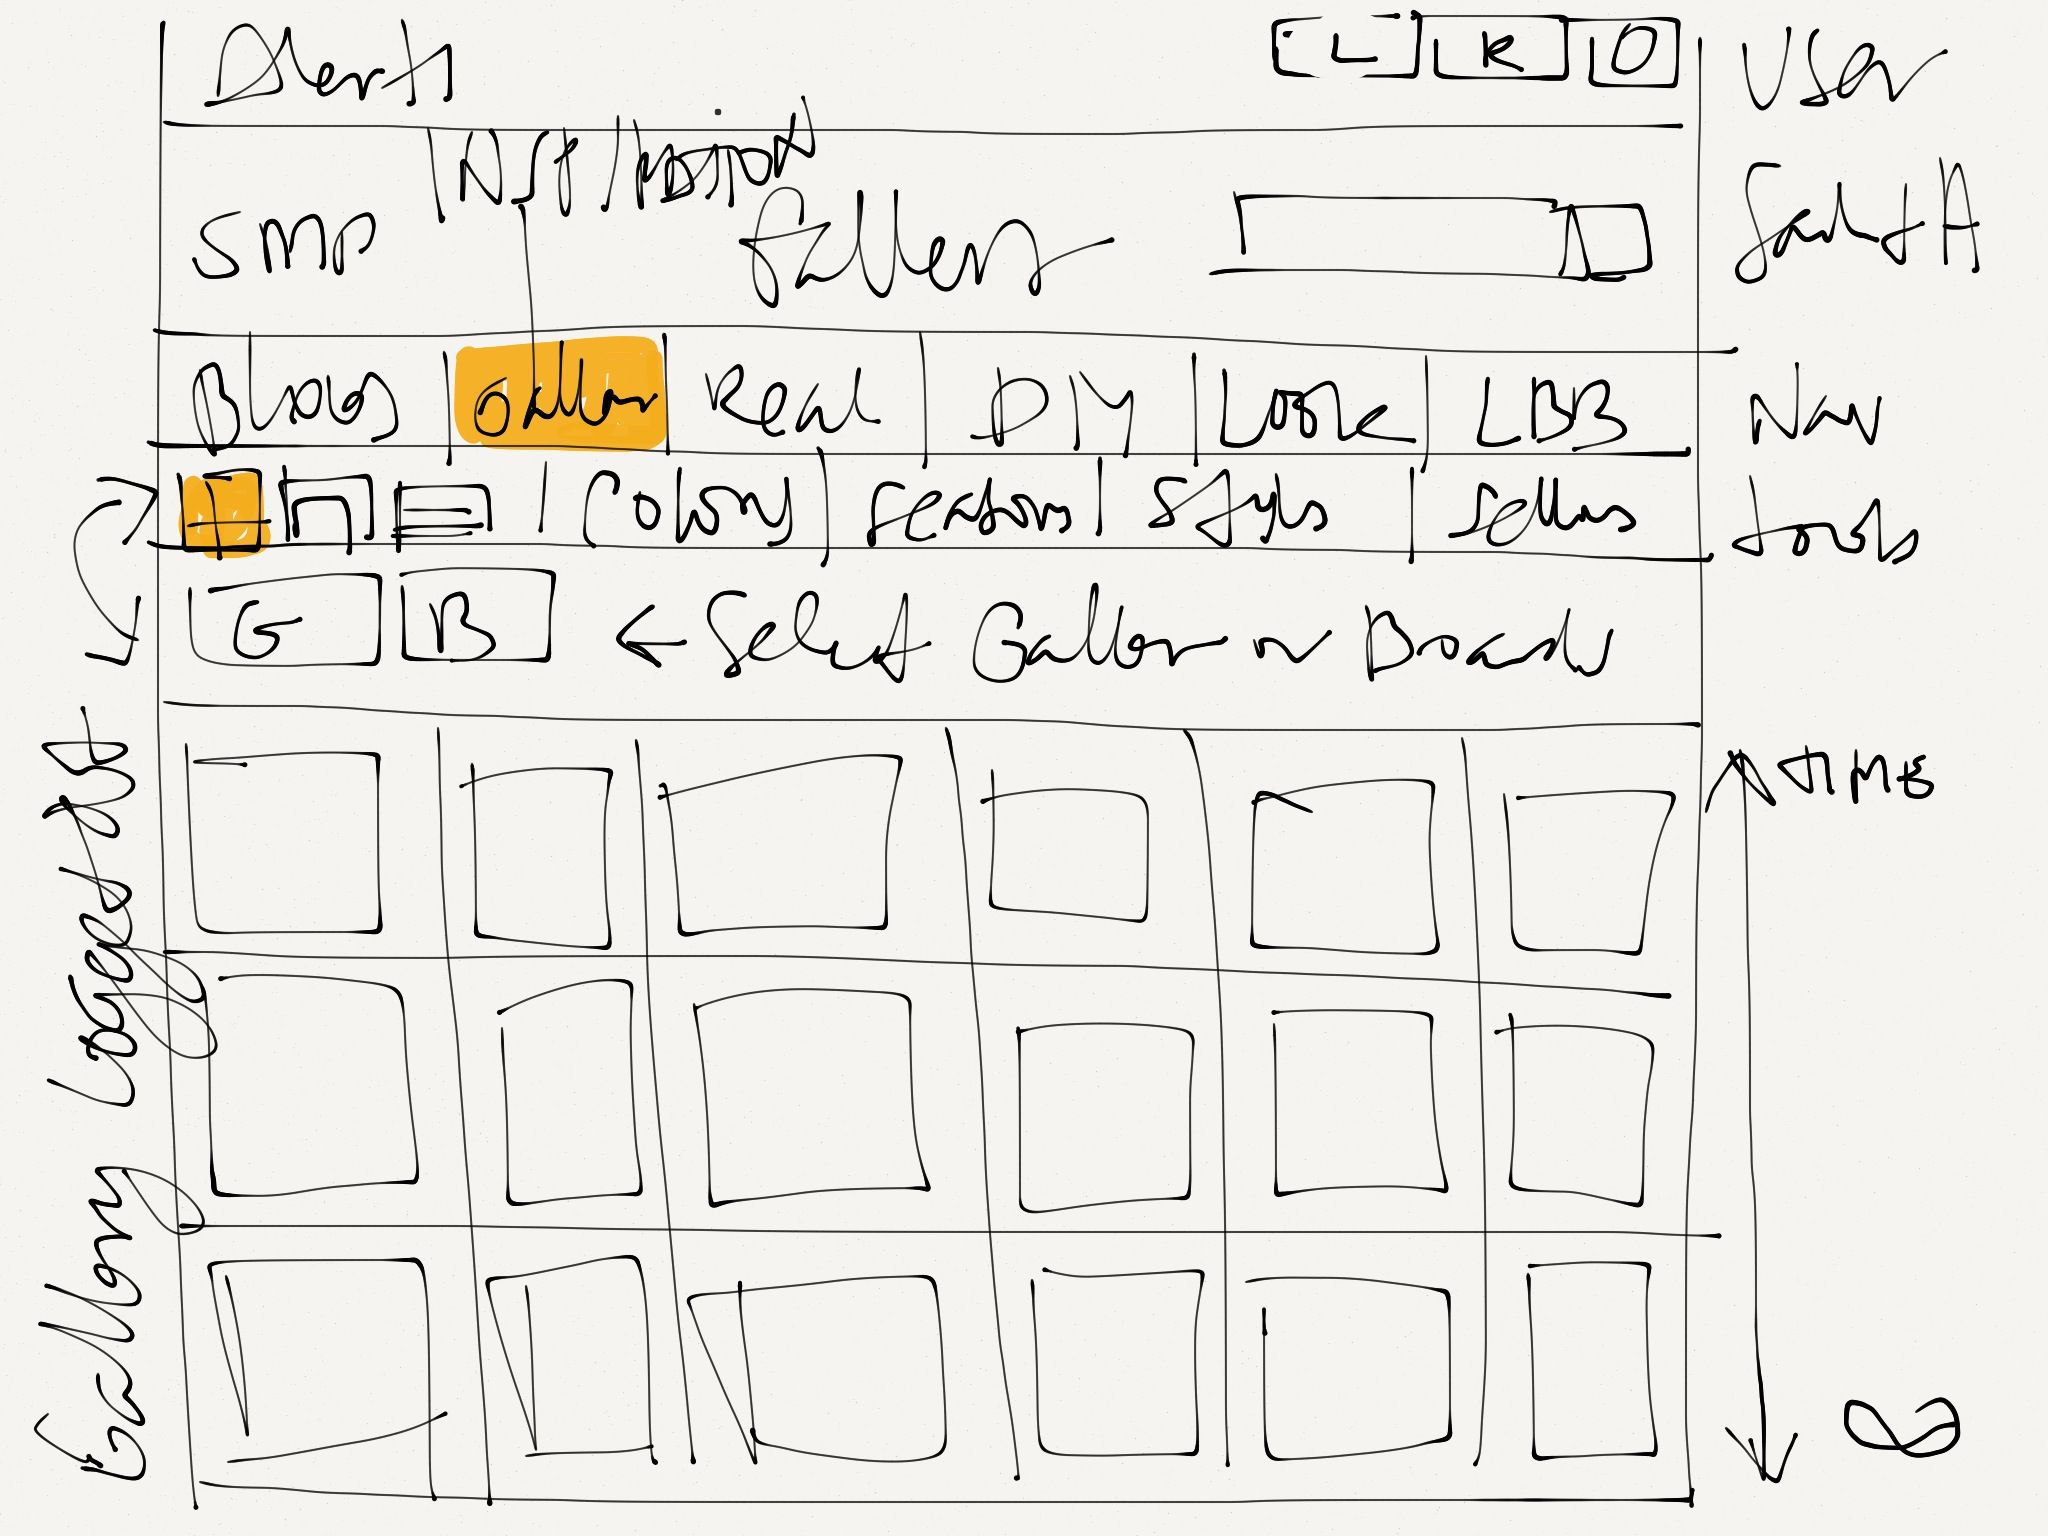 Alerts L R O User
INSPIRATION
SMP Gallery Search A
Blogs Gallery Real DIY Look LBB Nav
Colors Season Styles Sellers Tools
G B ← Select Gallery or Board
TIME
Gallery Logged Out
∞